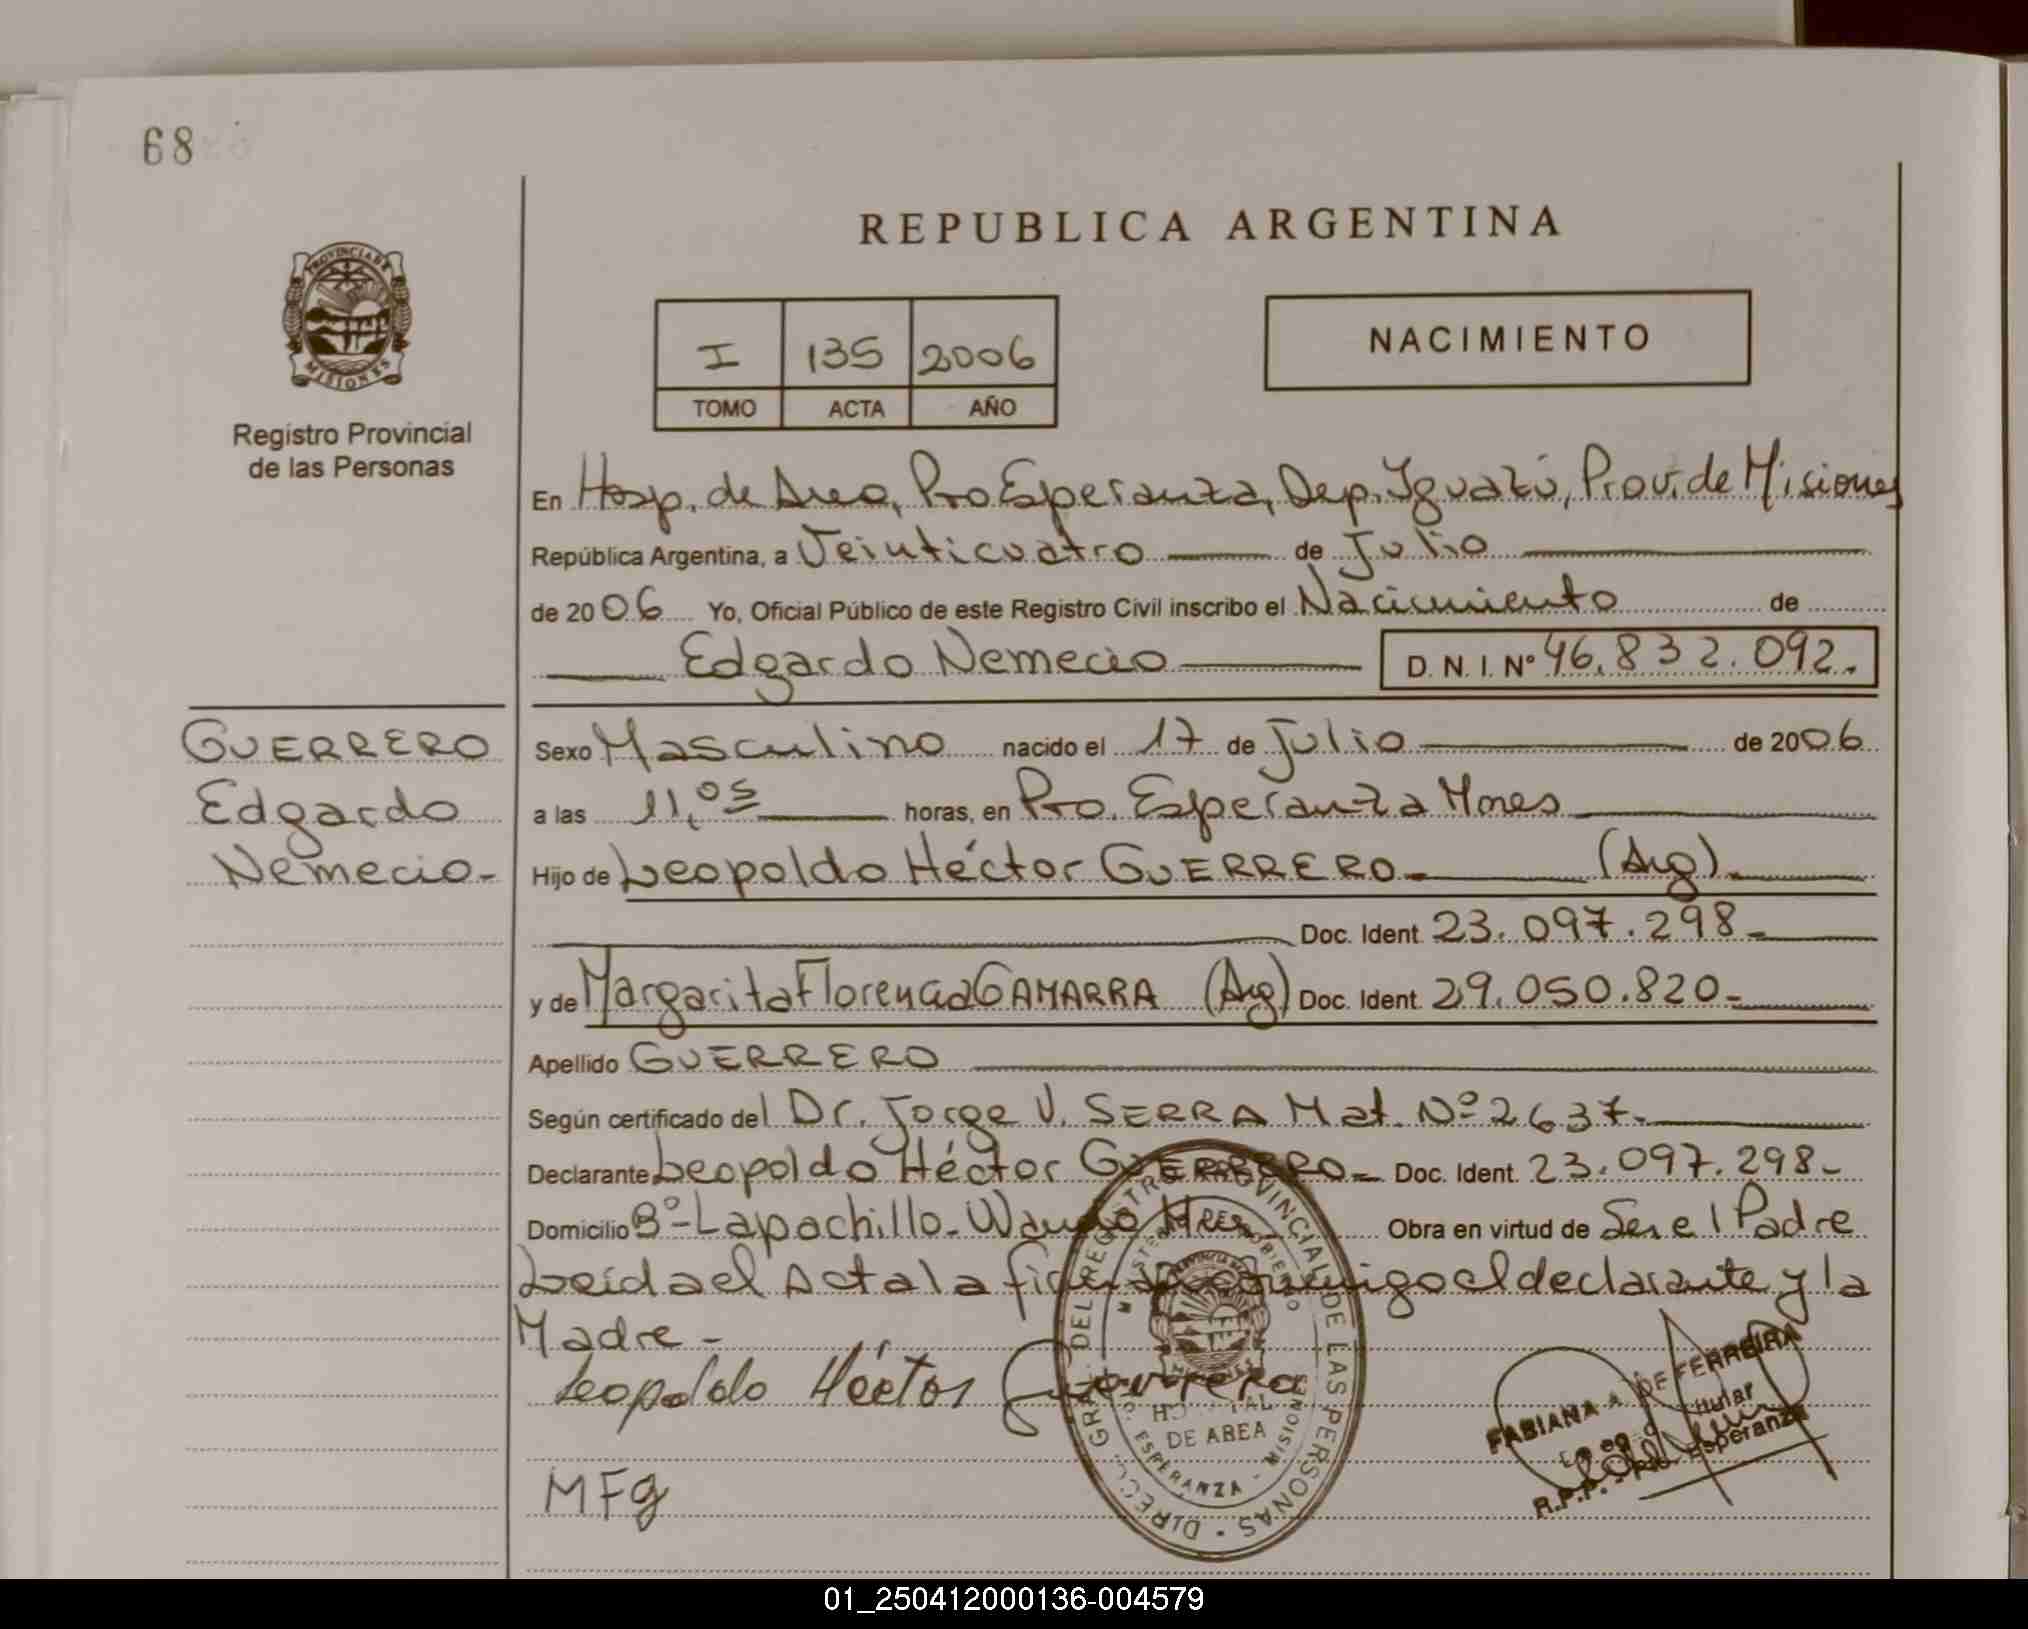 68
REPUBLICA ARGENTINA
PROVINCIA DE
MISIONES
Registro Provincial
de las Personas
I 135 2006
TOMO ACTA AÑO
NACIMIENTO
En Hosp. de Area, Pto Esperanza, Dep. Iguazú, Prov. de Misiones
República Argentina, a Veinticuatro de Julio
de 2006 Yo, Oficial Público de este Registro Civil inscribo el Nacimiento de
Edgardo Nemecio D.N.I. Nº 46.832.092.
GUERRERO
Edgardo
Nemecio-
Sexo Masculino nacido el 17 de Julio de 2006
a las 11,05 horas, en Pto. Esperanza Mnes
Hijo de Leopoldo Héctor GUERRERO- (Arg).
Doc. Ident. 23.097.298-
y de Margarita Florencia GAMARRA (Arg) Doc. Ident. 29.050.820-
Apellido GUERRERO
Según certificado del Dr. Jorge V. SERRA Mat. Nº 2637-
Declarante Leopoldo Héctor GUERRERO- Doc. Ident. 23.097.298-
Domicilio Bº-Lapachillo-Wanda Obra en virtud de Ser el Padre
Leída el Acta la firman conmigo el declarante y la
Madre-
Leopoldo Héctor Guerrero
MFg
DIREC. GRAL. DEL REGISTRO PROVINCIAL DE LAS PERSONAS
HOSPITAL
DE AREA
ESPERANZA - MISIONES
FABIANA A. DE FERREIRA
Titular
R.P.P. Esperanza
01_250412000136-004579